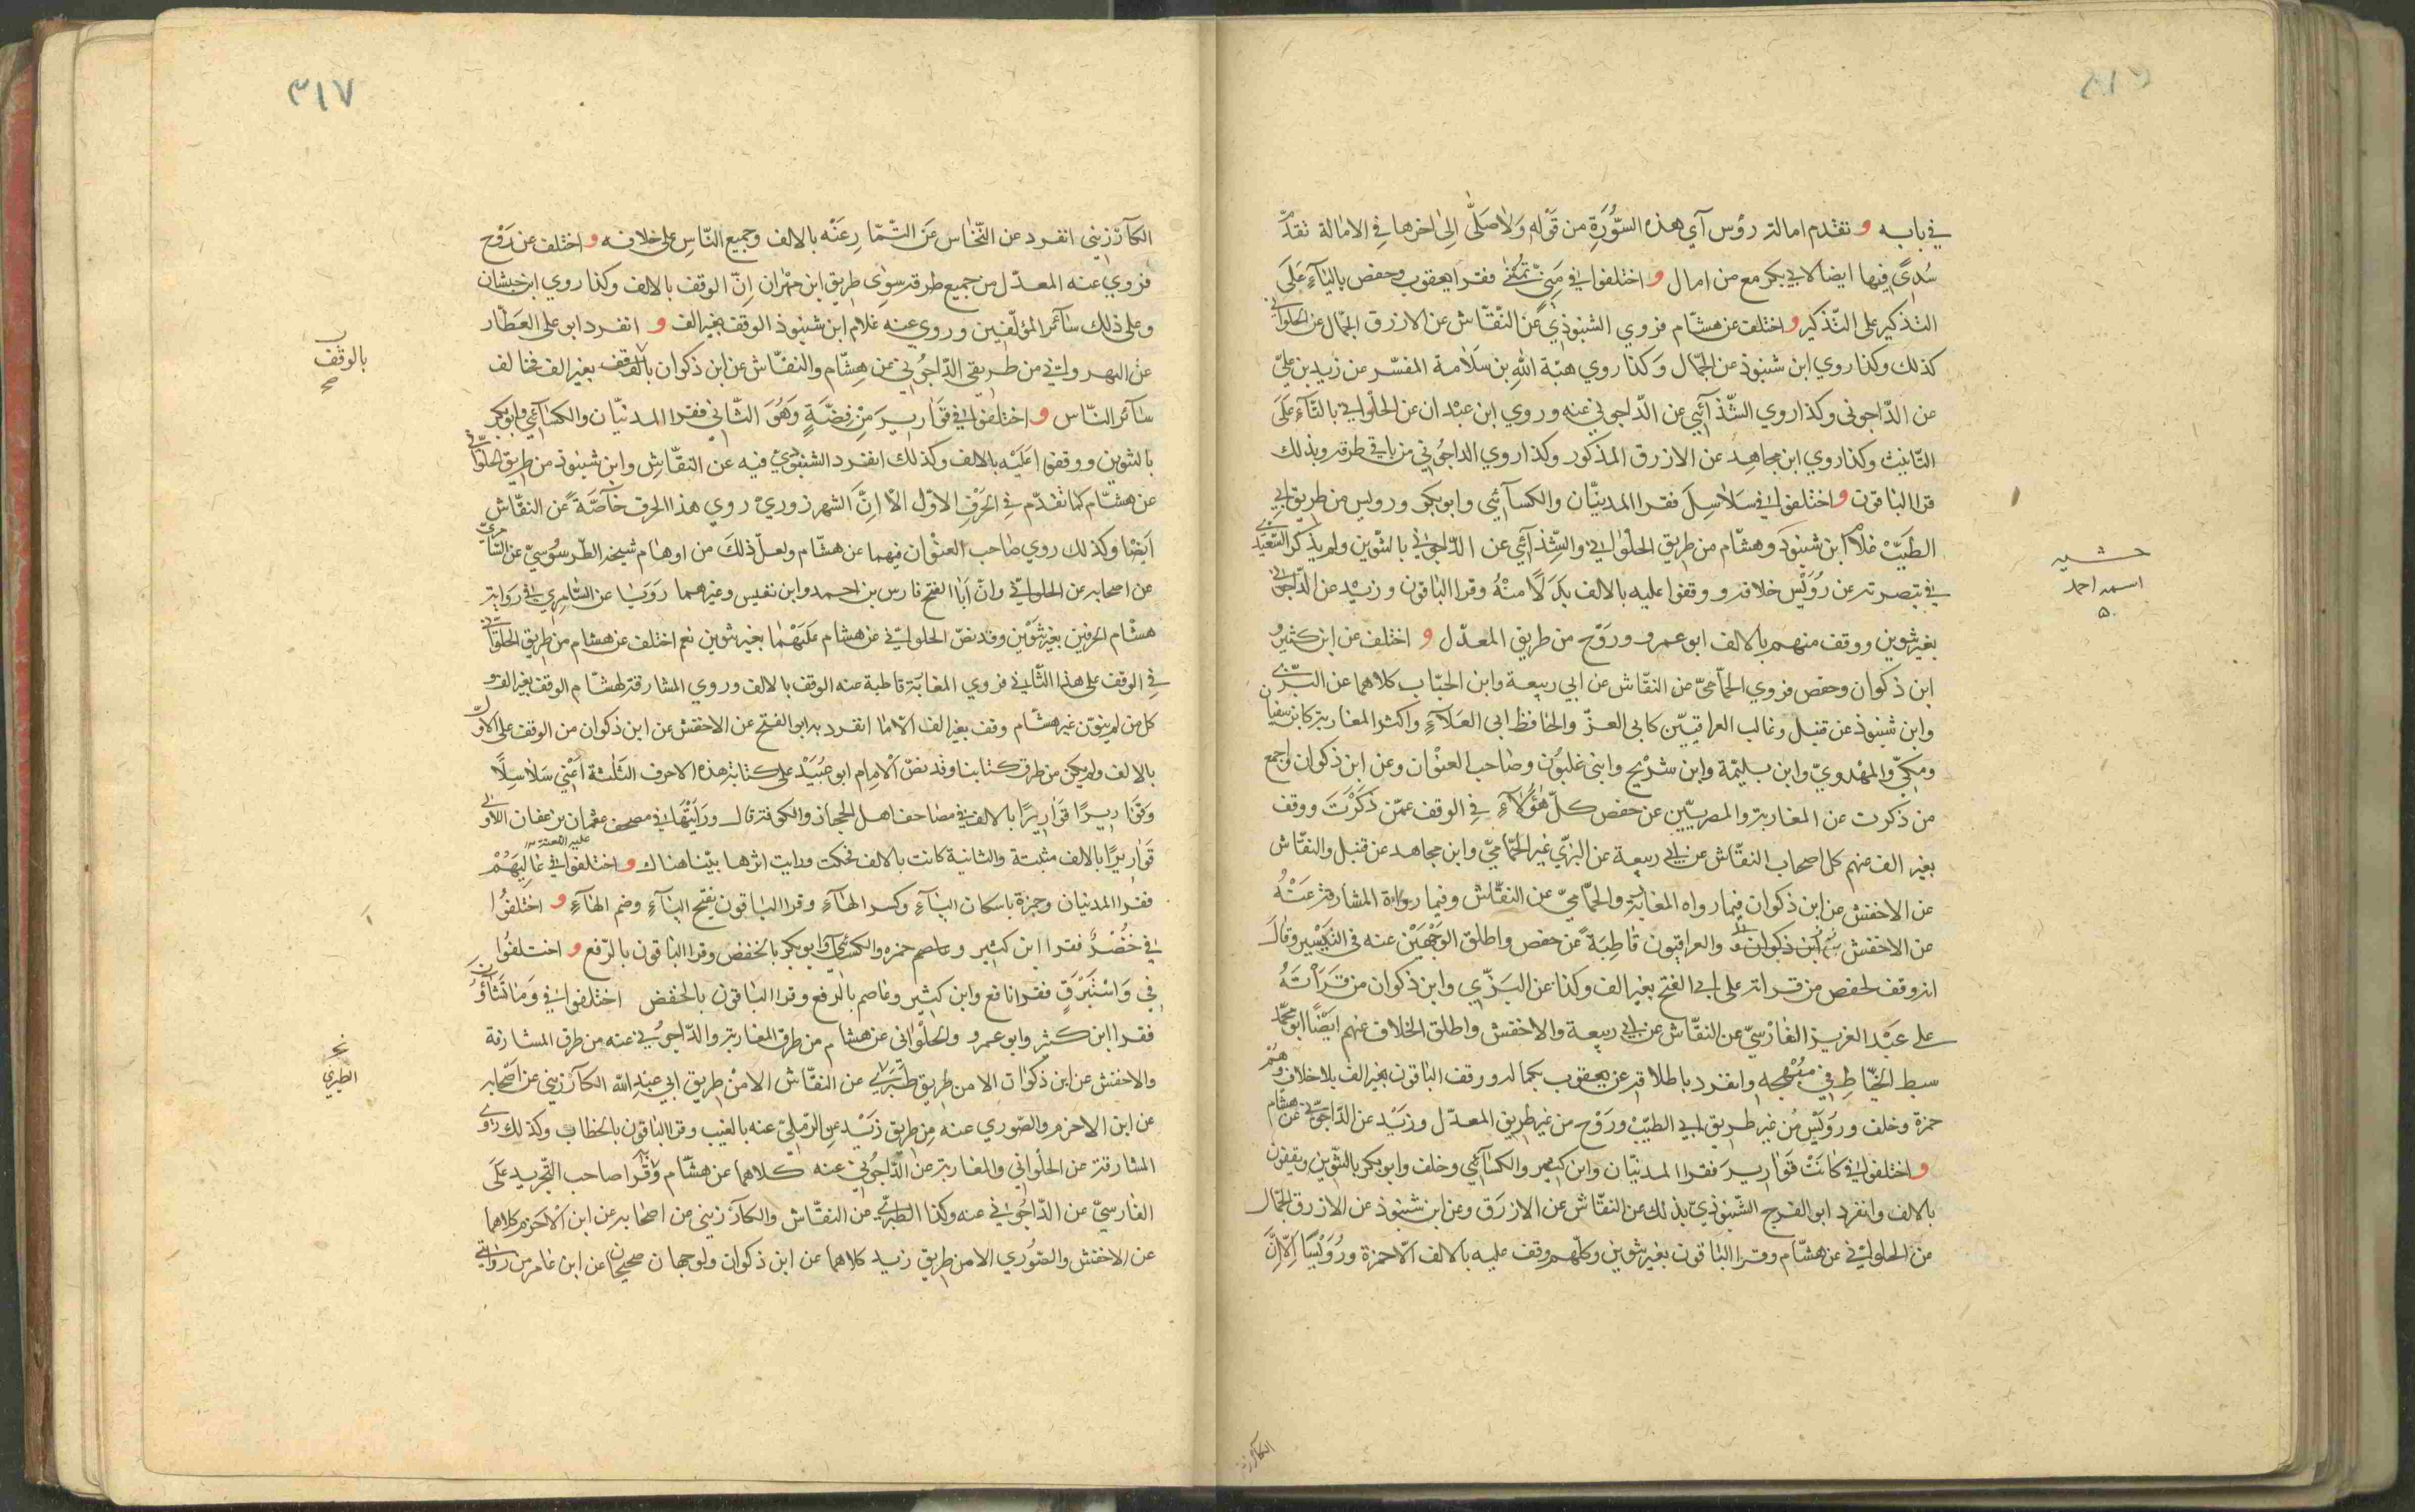 في بابه و تقدم امالة رؤس آي هذه السُّورَةِ من قَوْلِهِ وَلَاصَلَّى اِلىٰ اخرها فِي الامالة تقدّم
سُدىً فيها ايضا لابي بكر مع من امال و اختلفوا في مَنِيّ تُمْنىٰ فقرا يعقوب وحفص باليَاءِ عَلَى
التذكير على التّذكير و اختلف عن هشّام فروي الشنبوذي عَن النّقّاش عن الازرق الجمّال عن الحلواني
كذلك وكذا روي ابن شنبوذ عن الجّمال وَكذا روي هبّة اللّٰهِ بن سَلَامة المفسّر عن زيد بن عليّ
عن الدّاجوني وكذا روي الشّذآئي عن الدّاجوني عنه وروي ابن عبْدان عن الحلْواني بالتّآءِ عَلَى
التّانيث وكذا روي ابن مجاهِد عن الازرق المذكور وكذا روي الداجُوني من باقي طرقه وبذلك
قرا الباقون و اختلفوا في سَلاسِلَ فقرا المدنيّان والكسآئي وابوبكر ورويس من طريق ابي
الطيّبْ غلام ابن شنبوذ وهشّام من طريق الحلْواني والشّذآئي عن الدّاجوني بالتّنوين ولم يذكر السّعيدي
في تبصرته عن رُوَيْس خلافه ووقفوا عليه بالالف بَدَلاً منْهُ وقرا الباقون وزيْد عن الدّاجوني
بغير تنوين ووقف منهم بالالف ابوعمرو ورَوْح من طريق المعدّل و اختلف عن ابن كثيرٍ و
ابن ذكوان وحفص فروي الحمّاميّ عن النقّاش عن ابي ربيعة وابن الحبّاب كلاهما عن البزّي
وابن شنبوذ عن قنبل وغالب العراقيّين كابي العزّ والحافظ ابي العَلآءِ واكثر المغاربة كابن سفيان
ومكيّ والمهْدويّ وابن بليّمة وابن شريْح وابني غلبُون وصاحب العنْوان وعن ابن ذكوان واجمع
من ذكرت عن المغاربة والمصريّين عن حفص كلّ هٰؤُلآءِ فِي الوقف عمّن ذَكَرْتَ ووقف
بغير الف عنهم كل اصحاب النقّاش عن ابي ربيعة عن البزي غير الحّماميّ وابن مجاهد عن قنبل والنقّاش
عن الاخفش عن ابن ذكوان فيمارواه المغاربة والحمّاميّ عن النقّاش وفيما رواه المشارقة عَنْهُ
عن الاخفش ابن ذكوان والعراقيون قاطِبَةً عن حفص واطلق الوَجْهَيْن عنه في التيسيْر وقال
انه وقف لحفص من قراته على ابي الفتح بغير الف وكذا عن البَزّي وابن ذكوان من قَرَأتَهُ
على عَبْد العزيز الفارسيّ عن النقّاش عن ابي ربيعة والاخفش واطلق الخلاف عنهم ايضًا ابو محمّد
سبط الخيّاطِ في مبْهجه وانفرد باطلاقه عن يعقوب بكماله ووقف الباقون بغير الف بلا خلاف وهم
حمزة وخلف ورُوَيْس مُن غير طريق ابي الطيّبْ ورَوْح من غير طريق المعدّل وزيْد عن الدّاجوني عن هشام
و اختلفوا في كانَتْ قَوَارِيرَ فقرا المدنيّان وابن كثير والكسآئي وخلف وابو بكر بالتّنوين ويقفون
بالالف وانفرد ابو الفرج الشّنبوذيّ بذلك عن النقّاش عن الازرَق وعن ابن شنبوذ عن الازرق الجّمال
عن الحلواني عن هشّام وقرا الباقون بغير تنوين وكلّهم وقف عليه بالالف الّا حمزة ورُوَيْسًا اِلّا اِنَّ
الكآرزيني
حـ شيـه
اسمه احمد
٥٠
٣١٧
الكآرْزيني انفرد عن النّخاس عَن التّمّارِ عَنْه بالالف وجميع النّاسِ على خلافه و اختلف عن رَوْح
فروي عنه المعدّل من جميع طرقه سِوىٰ طريق ابن مهْران اِنّ الوقف بالالف وكذا روي ابن حبشان
وعلى ذلك سآئر المؤلّفيْن وروي عنه غلام ابن شنبوذ الوقف بغير الف و انفرد ابو علي العَطّار
عن النهرواني من طريقي الدّاجُوني عن هِشّام والنقّاش عن ابن ذكوان بالوقف بغير الف فخالف
سآئر النّاس و اختلفوا في قَوَارِيرَ مِنْ فِضّةٍ وَهُوَ الثّاني فقرا المدنيّان والكسآئي وابوبكر
بالتّنوين ووقفوا عَليْه بالالف وكذلك انفرد الشنبوذي فيه عن النقّاشِ وابن شنبوذ من طريق الحلواني
عن هشّام كما تقدّم في الحَرْفِ الاوّل الّا اِنَّ الشهرزوريْ روي هذا الحرف خآصَّةً عن النقّاش
ايضْا وكذلك روي صَاحب العنْوان فيهما عن هشّام ولعلّ ذلكَ من اوهام شيخه الطّرسُوسيّ عن السّامريّ
عن اصحابه عن الحلواني وانّ اَبَا الفتح فارس بن احمد وابن نفيس وغيرهما رَوَيَا عن السّامِري في رَوايته
هشْام الحرفين بغير تَنْوين وقد نصّ الحلوانيّ عن هشام عَليْهمُا بغير تنوين نعم اختلف عن هشام من طريق الحلوانيّ
في الوقف على هذا الثّاني فروي المغاربَة قاطبة عنه الوقف بالالف وروي المشارقة لهشّام الوقف بغير الف و
كل من لم ينوّن غير هشّام وقف بغير الف الّا ما انفرد به ابو الفتح عن الاخفش عن ابن ذكوان من الوقف على الاوّل
بالالف ولم يكن من طرق كتابنا وقد نصّ الْامِام ابو عبَيْد على كتابة هذه الاحرف الثّلثة اَعْني سَلاسِلًا
وَقوَارِيرًا قوَارِيرًا بالالف في مصاحف اهل الحجاز والكوفة قال ورَايْتهَا في مصحف عثمان بن عفان الاولى
قوَاريرًا بالالف مثبتة والثانية كانت بالالف فحكت ورايت اثرها بيّنا هناك و اختلفوا في عَالِيَهُمْ
فقرا المدنيان وحمزة باسكان اليآءِ وكسر الهآءِ وقرا الباقون بفتح اليآءِ وضم الهآءِ و اختَلفُوا
في خُضْرٌ فقرا ابن كثير وعاصم حمزه والكسآئي وابوبكر بالخفض وقرا الباقون بالرّفع و اختلفُوا
فِي وَاسْتَبْرَقٍ فقرا نافع وابن كثير وعاصم بالرفع وقرا الباقون بالخفض اختلفوا في وَمَا تَشَآؤُنَ
فقرا ابن كثير وابوعمرو والحلْواني عن هشام من طرق المغاربة والدّاجُوني عنه من طرق المشارقة
والاخفش عن ابن ذكوان الا من طريق طَبَري عن النقّاش الا مْن طريق ابي عبد الله الكآرْزيني عن اصْحابه
عن ابن الاخرم والصّوري عنه مِن طريق زَيْد عن الرّمليّ عنه بالغيب وقرا الباقون بالخطاب وكذلك روي
المشارقة عن الحلْواني والمغاربة عن الدّاجُونيْ عنه كلاهما عن هشّام وقَرَا صاحب التّجريد عَلَى
الفارسيّ عن الدّاجُوني عنه وكذا الطبريّ عن النقّاش والكآرْزيني عن اصحابه عن ابن الْاخرم كلاهما
عن الاخفش والصّوري الا من طريق زيد كلاهما عن ابن ذكوان والوجهان صحيحان عن ابن عامر من روايتي
بالوقف
صح
عليه اللعنة
الطبري